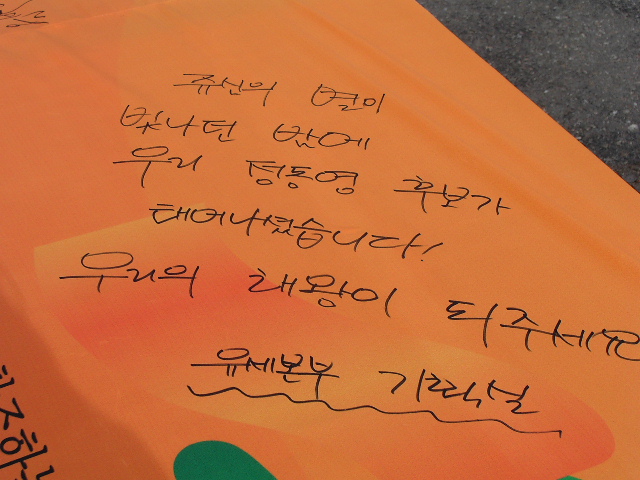 쥬신의 별이
빛나던 밤에
우리 정동영 후보가
태어나셨습니다!
우리의 태왕이 되주세요
유세본부 기획실